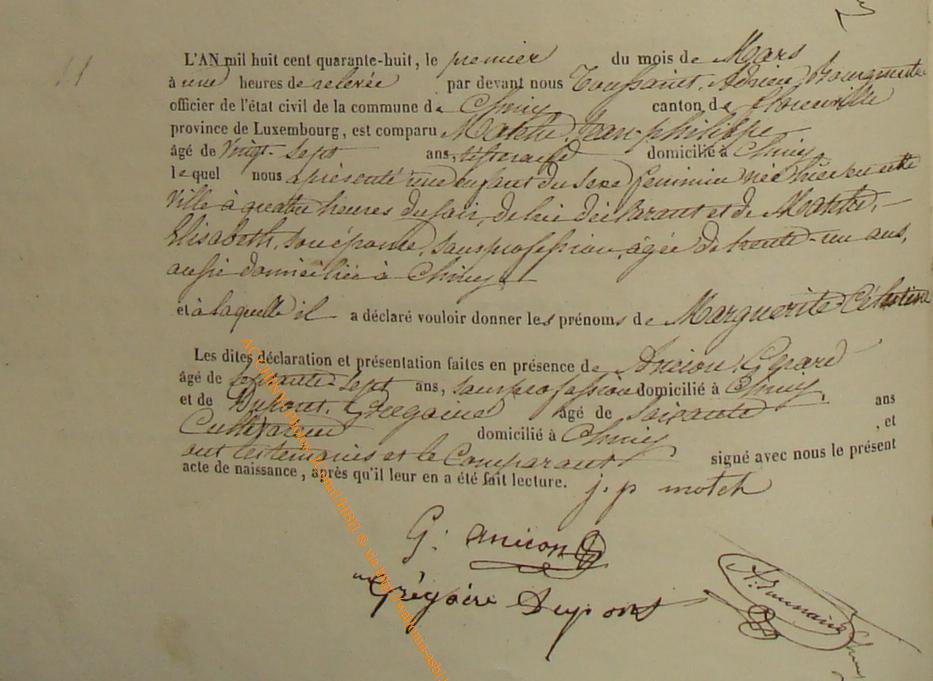 11
L'AN mil huit cent quarante-huit, le premier du mois de Mars
à une heures de relevée par devant nous Toussaint, Adrien
officier de l'état civil de la commune de Chiny canton de Florenville
province de Luxembourg, est comparu Jean-philippe
âgé de Vingt-sept ans, domicilié à Chiny
lequel nous a présenté une enfant du sexe feminin née hier en cette
Ville à quatre heures du soir, de lui déclarant et de
Elisabeth, son épouse, sans profession, âgée de trente-un ans,
aussi domiciliée à Chiny
et à laquelle il a déclaré vouloir donner les prénoms de Marguerite-Célestine
Les dites déclaration et présentation faites en présence de Ancion, Gérard
âgé de soixante-sept ans, sans profession domicilié à Chiny,
et de Dupont, Grégoire âgé de soixante ans
Cultivateur domicilié à Chiny , et
ont les témoins et le Comparant signé avec nous le présent
acte de naissance, après qu'il leur en a été fait lecture. j. p motch
G: ancion
Grégoire Dupont